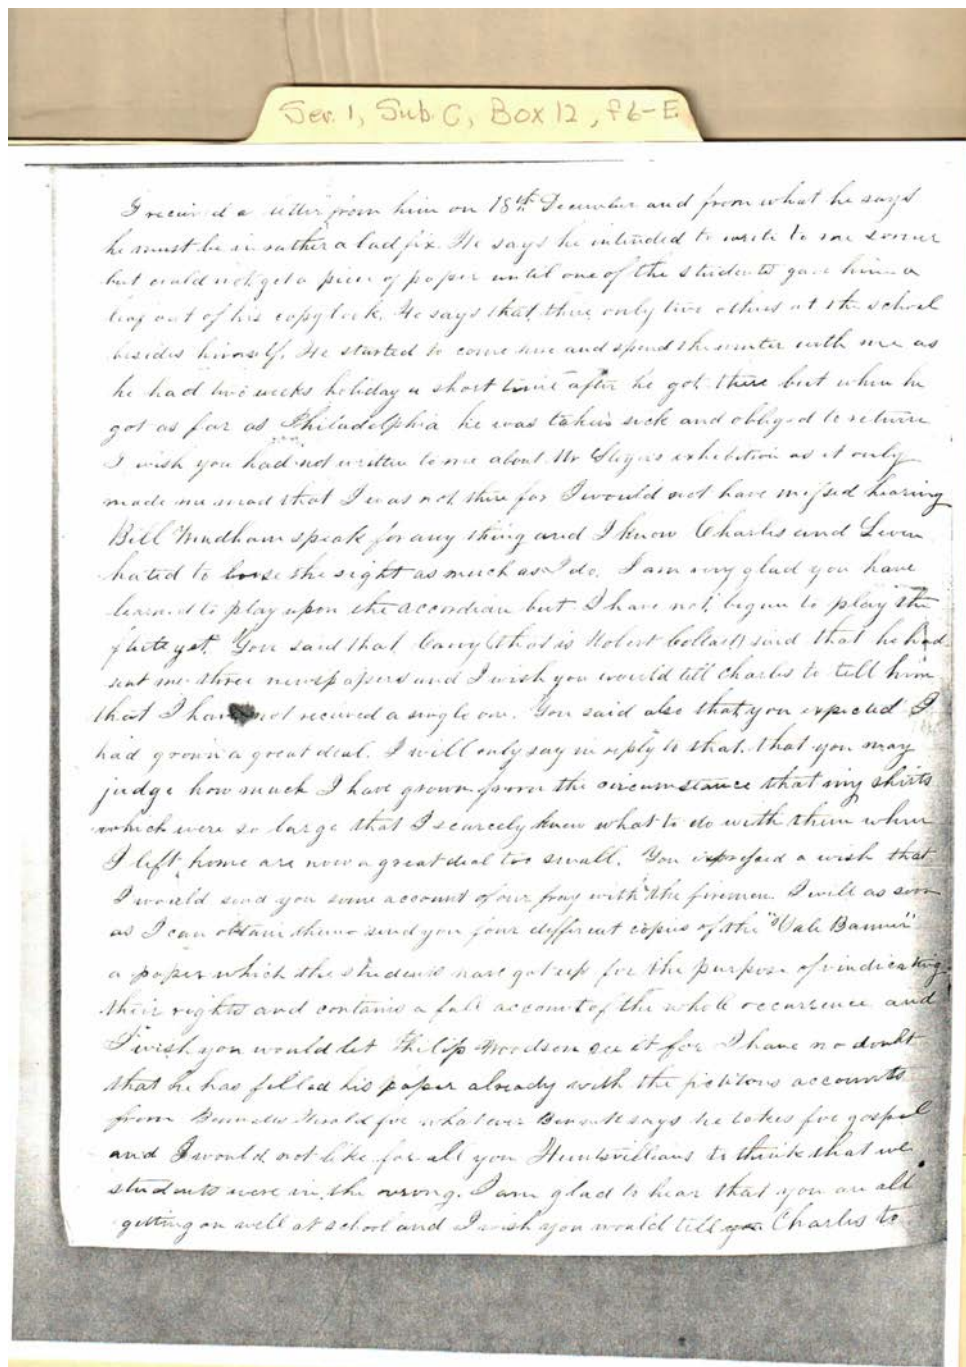 Ser. 1, Sub C, Box 12, f6-E
I received a letter from him on 18th December and from what he says
he must be in rather a bad fix. He says he intended to write to me sooner
but could not get a piece of paper until one of the students gave him a
leaf out of his copy book. He says that there only two others at the school
besides himself. He started to come here and spend the winter with me as
he had two weeks holiday a short time after he got there but when he
got as far as Philadelphia he was taken sick and obliged to return
I wish you had not written to me about Mr exhibition as it only
made me mad that I was not there for I would not have missed hearing
Bill speak for any thing and I know Charles and Leven
hated to loose the sight as much as I do. I am very glad you have
learned to play upon the accordian but I have not begun to play the
flute yet. You said that (that is Robert ) said that he had
sent me three newspapers and I wish you would tell Charles to tell him
that I have not received a single one. You said also that you expected I
had grown a great deal. I will only say in reply to that, that you may
judge how much I have grown from the circumstance that my shirts
which were so large that I scarcely knew what to do with them when
I left home are now a great deal too small. You expressed a wish that
I would send you some account of our fray with the firemen. I will as soon
as I can obtain them send you four different copies of the "Yale Banner"
a paper which the students have got up for the purpose of vindicating
their rights and contains a full account of the whole occurrence and
I wish you would let Philip Woodson see it for I have no doubt
that he has filled his paper already with the fictitous accounts
from Herald for whatever says he takes for gospel
and I would not like for all you Huntsvillians to think that we
students were in the wrong. I am glad to hear that you are all
getting on well at school and I wish you would tell you Charles to